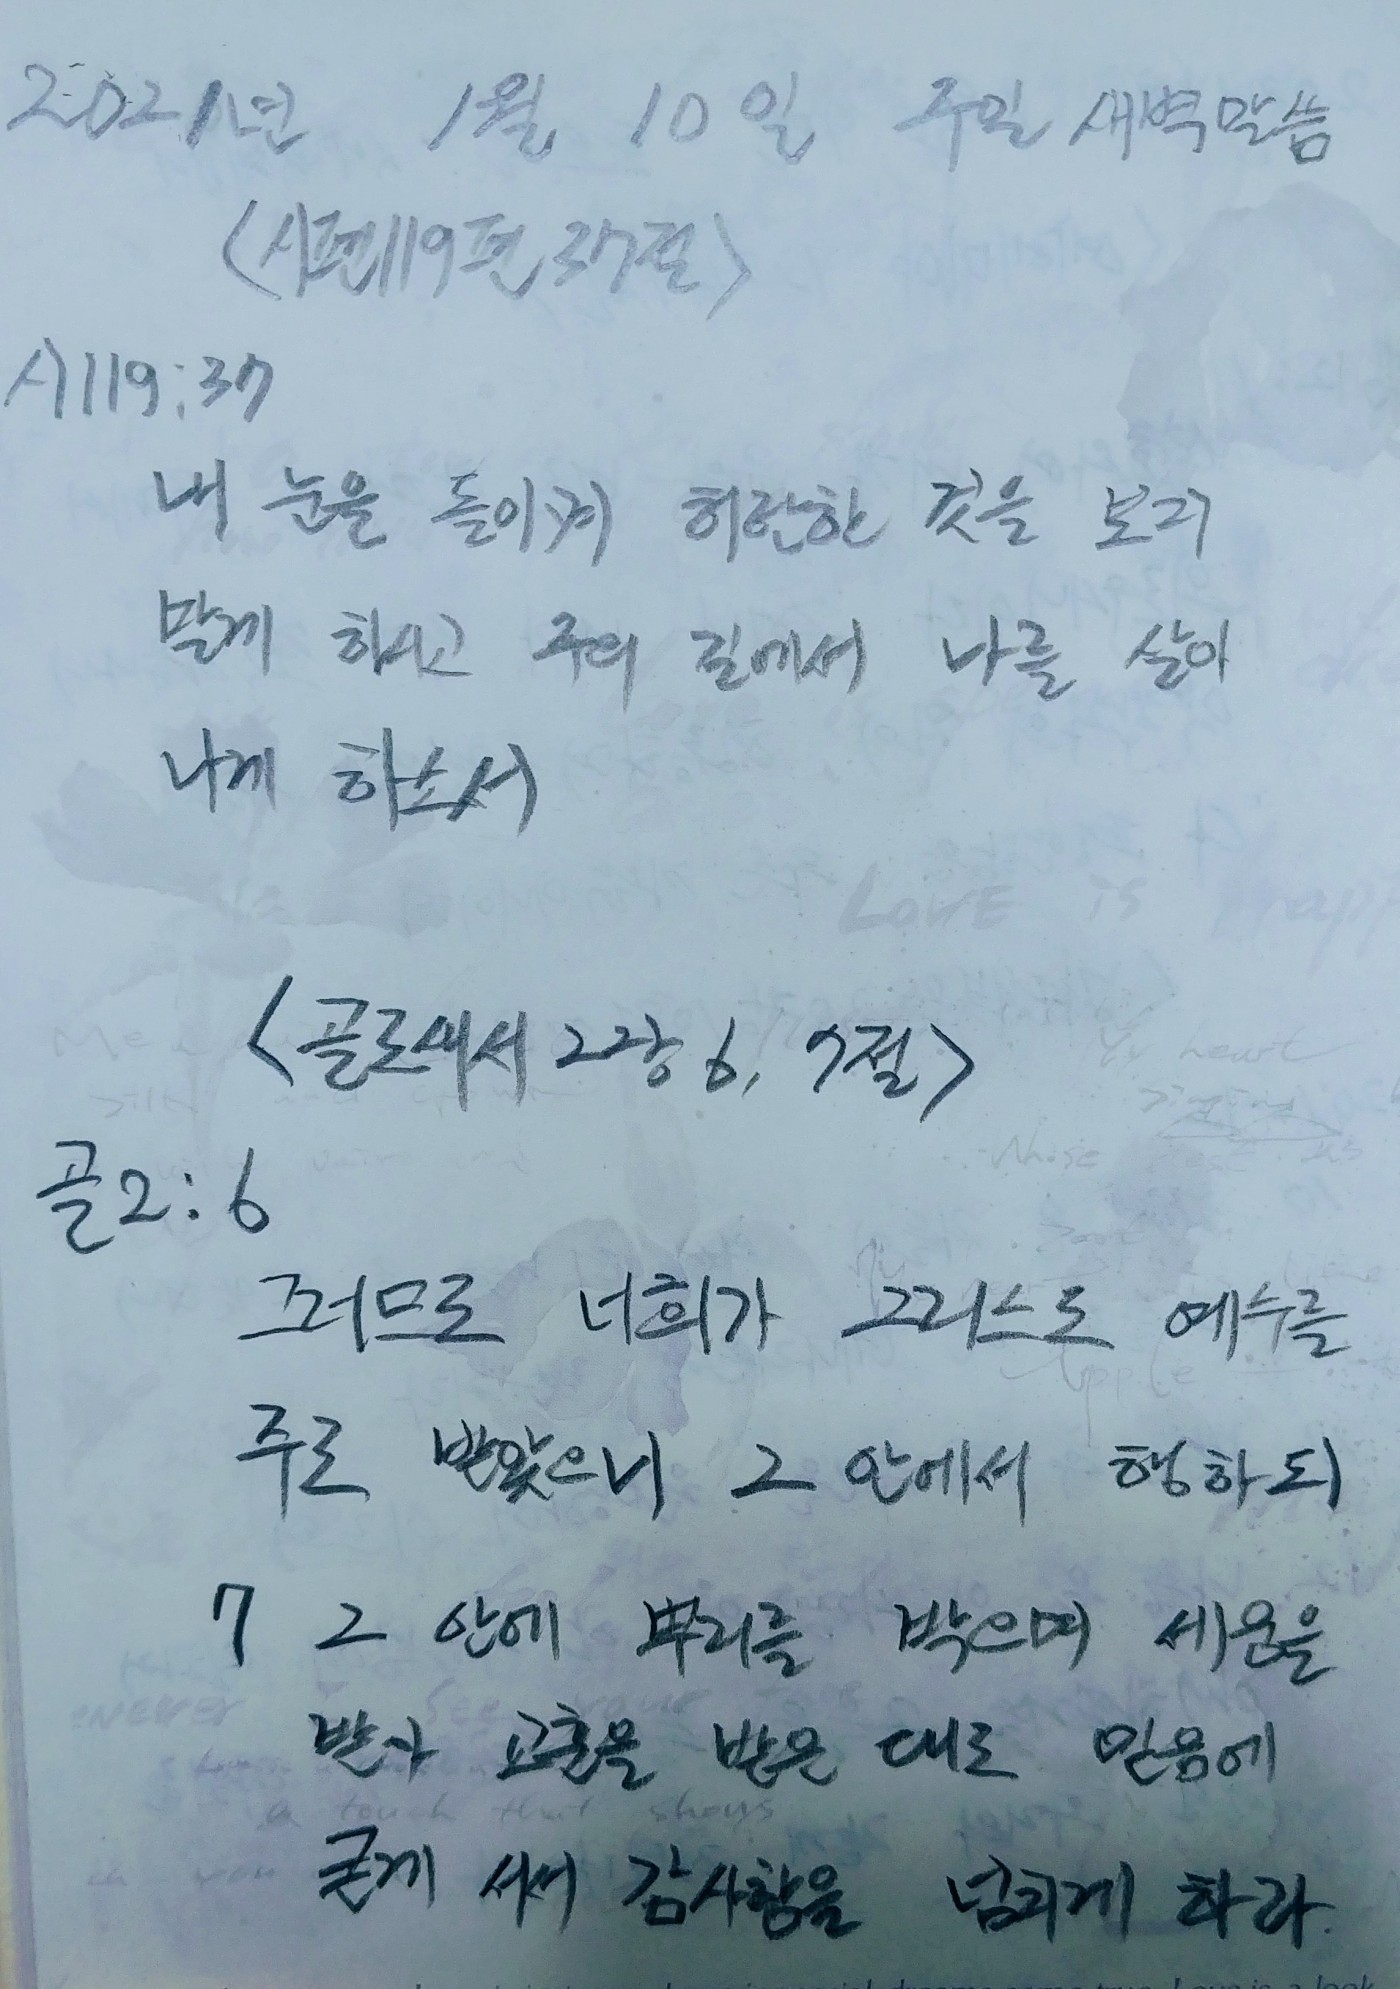 2021년 1월 10일 주일 새벽말씀
<시편119편 37절>
시119:37
내 눈을 돌이켜 허탄한 것을 보지
말게 하시고 주의 길에서 나를 살아
나게 하소서
LOVE is
<골로새서 2장 6, 7절>
골2:6
그러므로 너희가 그리스도 예수를
주로 받았으니 그 안에서 행하되
7 그 안에 뿌리를 박으며 세움을
받아 교훈을 받은 대로 믿음에
a touch that shows
굳게 서서 감사함을 넘치게 하라.